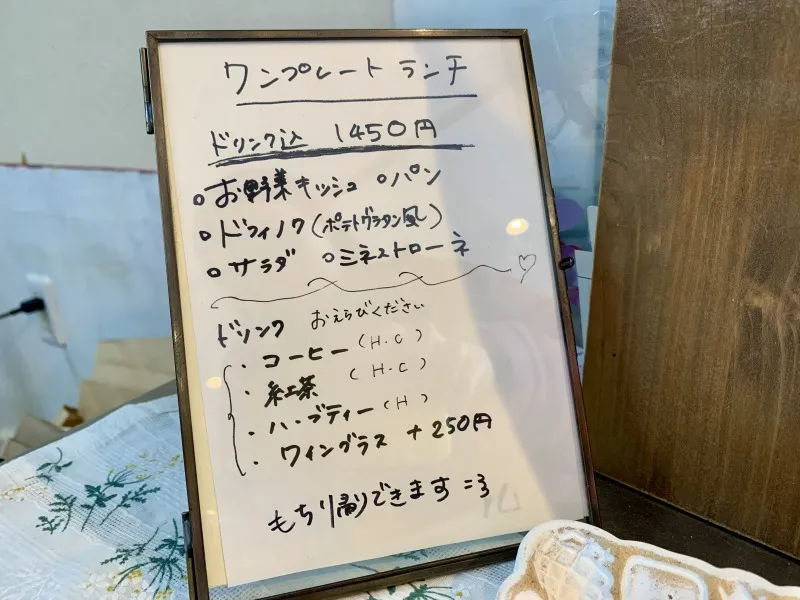 ワンプレートランチ
ドリンク込 1450円
○お野菜キッシュ ○パン
○ドフィノワ(ポテトグラタン風)
○サラダ ○ミネストローネ
ドリンク おえらびください
・コーヒー(H・C)
・紅茶 (H・C)
・ハーブティー(H)
・ワイングラス +250円
もち帰りできます